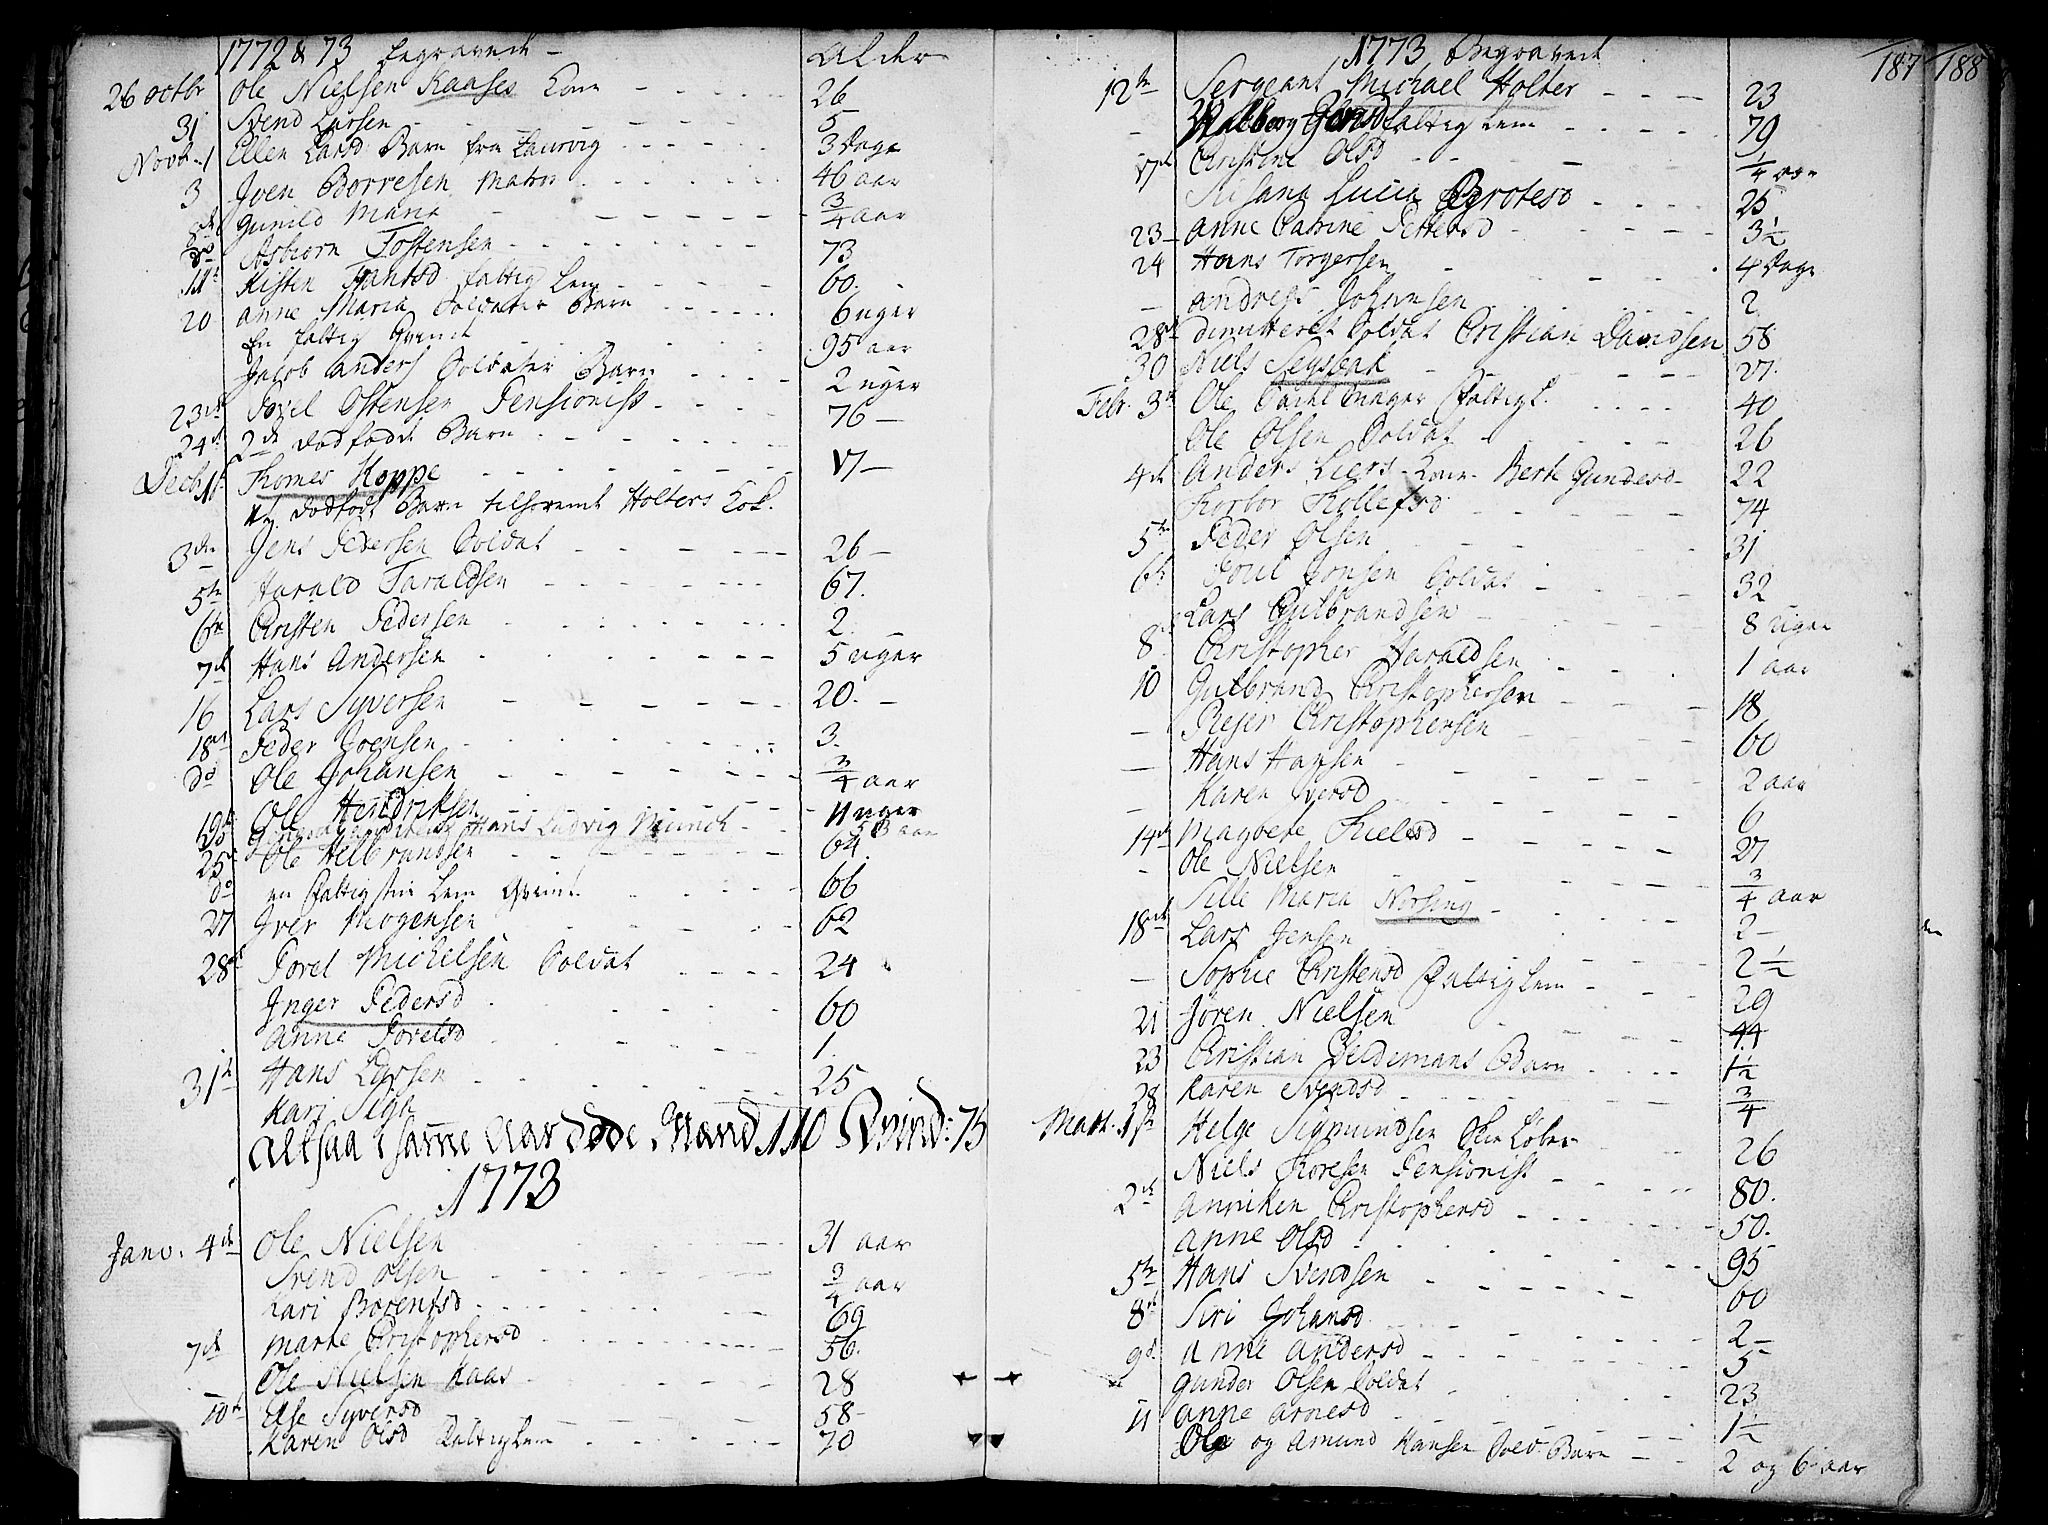 1772 & 73 begravede – Alder
26 Octbr Ole Nielsen Kaases Kone 26
31 Svend Larsen 5
Novbr 1 Ellen Larsd: Barn fra Laurvig 3 Dage
3 Joen Borresen Matros 46 aar
8de Gunild Maria 3/4 aar
do Asbiorn Tostensen 73
11te Kisten Hansd fattig Lem 60.
20 Anne Maria Soldater Barn 6 uger
En fattig Qvinde 95 aar
Jacob Anders Soldater Barn 2 uger
23de Povel Ostensen Pensionist 76 –
24de 2de dodfodde Barn
Decbr 1ste Thomes Koppe 17 –
dodfodt Barn tilhorende Holters Kok.
3die Jens Pedersen Soldat 26 –
5te Harald Taraldsen 67.
6te Christen Pedersen 2. –
7de Hans Andersen 5 uger
16 Lars Syversen 20. –
18de Peder Joensen 3.
do Ole Johansen 3/4 aar
19de Ole Hendriksen 11 uger
Hans Ludvig Munch 53 aar
25de Ole Helbrandsen 64.
do en Fattig Lem Qvinde 66
27 Iver Mogensen 62
28de Povel Michelsen Soldat 24
Inger Pedersd 60
Anne Povelsd 1.
31te Hans Larsen 25
Kari
Altsaa i samme Aar døde, Mand 110 Qvind: 75
1773
Janv. 4de Ole Nielsen 31 aar
Svend Olsen 3/4 aar
Kari Borentsd 69
7de Marte Christophersd 56.
Ole Nielsen Kaas 28
10de Else Syversd 58 –
Karen Olsd Fattig Lem 70
1773 Begravede 187 188
12te Sergeant Michael Holter 23
– fattig Lem 79
17de Christine Olsd 1/4 aar
Susana Lucia Brotesd 25
23 – Anne Catrine Pettersd 3 1/2
24 Hans Torgersen 4 Dage
– Andreas Johansen 2
28de dimitteret Soldat Christian Davidsen 58
30 Niels 27.
Febr. 3de Ole Fattigl. 40
Ole Olsen Soldat 26
4de Anders Liers Kone Berte Gundersd – 22
Torbor Tollefsd 74
5te Peder Olsen 31
6te Poul Jonsen Soldat 32
Lars Gulbrandsen 8 Uger
8 Christopher Haraldsen 1 aar
10 Gulbrand Christophersen 18
– Rejer Christophersen 60
– Hans Hansen 2 aar
– Karen Iversd 6
14de Magrete Nielsd 27
– Ole Nielsen 3/4 aar
Sille Maria Norsing 2 –
18de Lars Jensen 2 1/2
– Sophie Christensd Fattig Lem 29
21 Jøren Nielsen 44
23 Christian Beldemans Barn 1 1/2
28 Karen Svendsd 3/4
Mart. 1ste Helge Sigmundsen Skie Løber 26
Niels Toresen Pensionist 80.
2de Anniken Christophersd 50.
Anne Olsd 95
5te Hans Svendsen 60
8de Siri Johansd 2 –
9de Anne Andersd 5
Gunder Olsen Soldat 23
11 Anne Arnesd 1 1/2
Ole og Amund Hansen Sold: Barn 2 og 6 aar